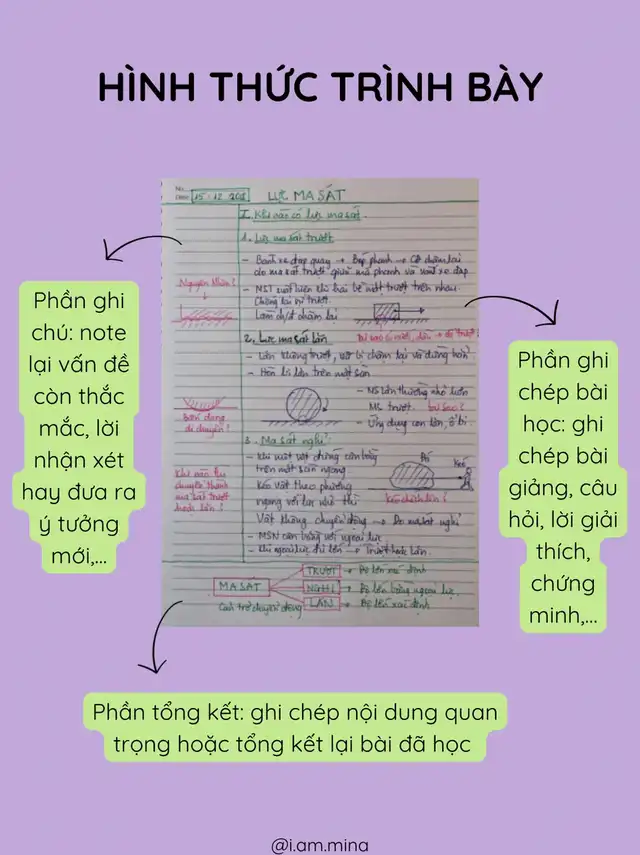 HÌNH THỨC TRÌNH BÀY
No.
Date 15.12.20
LỰC MA SÁT
I. Khi nào có lực ma sát.
1. Lực ma sát trượt
- Bánh xe đạp quay → Bóp phanh →
do ma sát trượt giữa má phanh và vành xe đạp
- MST xuất hiện khi hai bề mặt trượt trên nhau.
Chống lại sự trượt
Làm chậm lại
Nguyên nhân?
2. Lực ma sát lăn
- Lăn không trượt, vật bị chậm lại và dừng hẳn
- Hòn bi lăn trên mặt sàn
- MS lăn thường nhỏ hơn
MS trượt. Tại sao?
- Ứng dụng con lăn, ổ bi
Bánh dạng
di chuyển?
3. Ma sát nghỉ
- Khi một vật đứng cân bằng
trên mặt sàn ngang
Kéo vật theo phương
ngang với lực nhỏ thì
Vật không chuyển động → Do ma sát nghỉ
- MSN cân bằng với ngoại lực
- Khi ngoại lực đủ lớn → Trượt hoặc lăn.
Kéo
Khi nào
chuyển thành
ma sát trượt
hoặc lăn?
MA SÁT
Cản trở chuyển động
TRƯỢT → Độ lớn xác định
NGHỈ → Độ lớn bằng ngoại lực
LĂN → Độ lớn xác định
Phần ghi
chú: note
lại vấn đề
còn thắc
mắc, lời
nhận xét
hay đưa ra
ý tưởng
mới,...
Phần ghi
chép bài
học: ghi
chép bài
giảng, câu
hỏi, lời giải
thích,
chứng
minh,...
Phần tổng kết: ghi chép nội dung quan
trọng hoặc tổng kết lại bài đã học
@i.am.mina